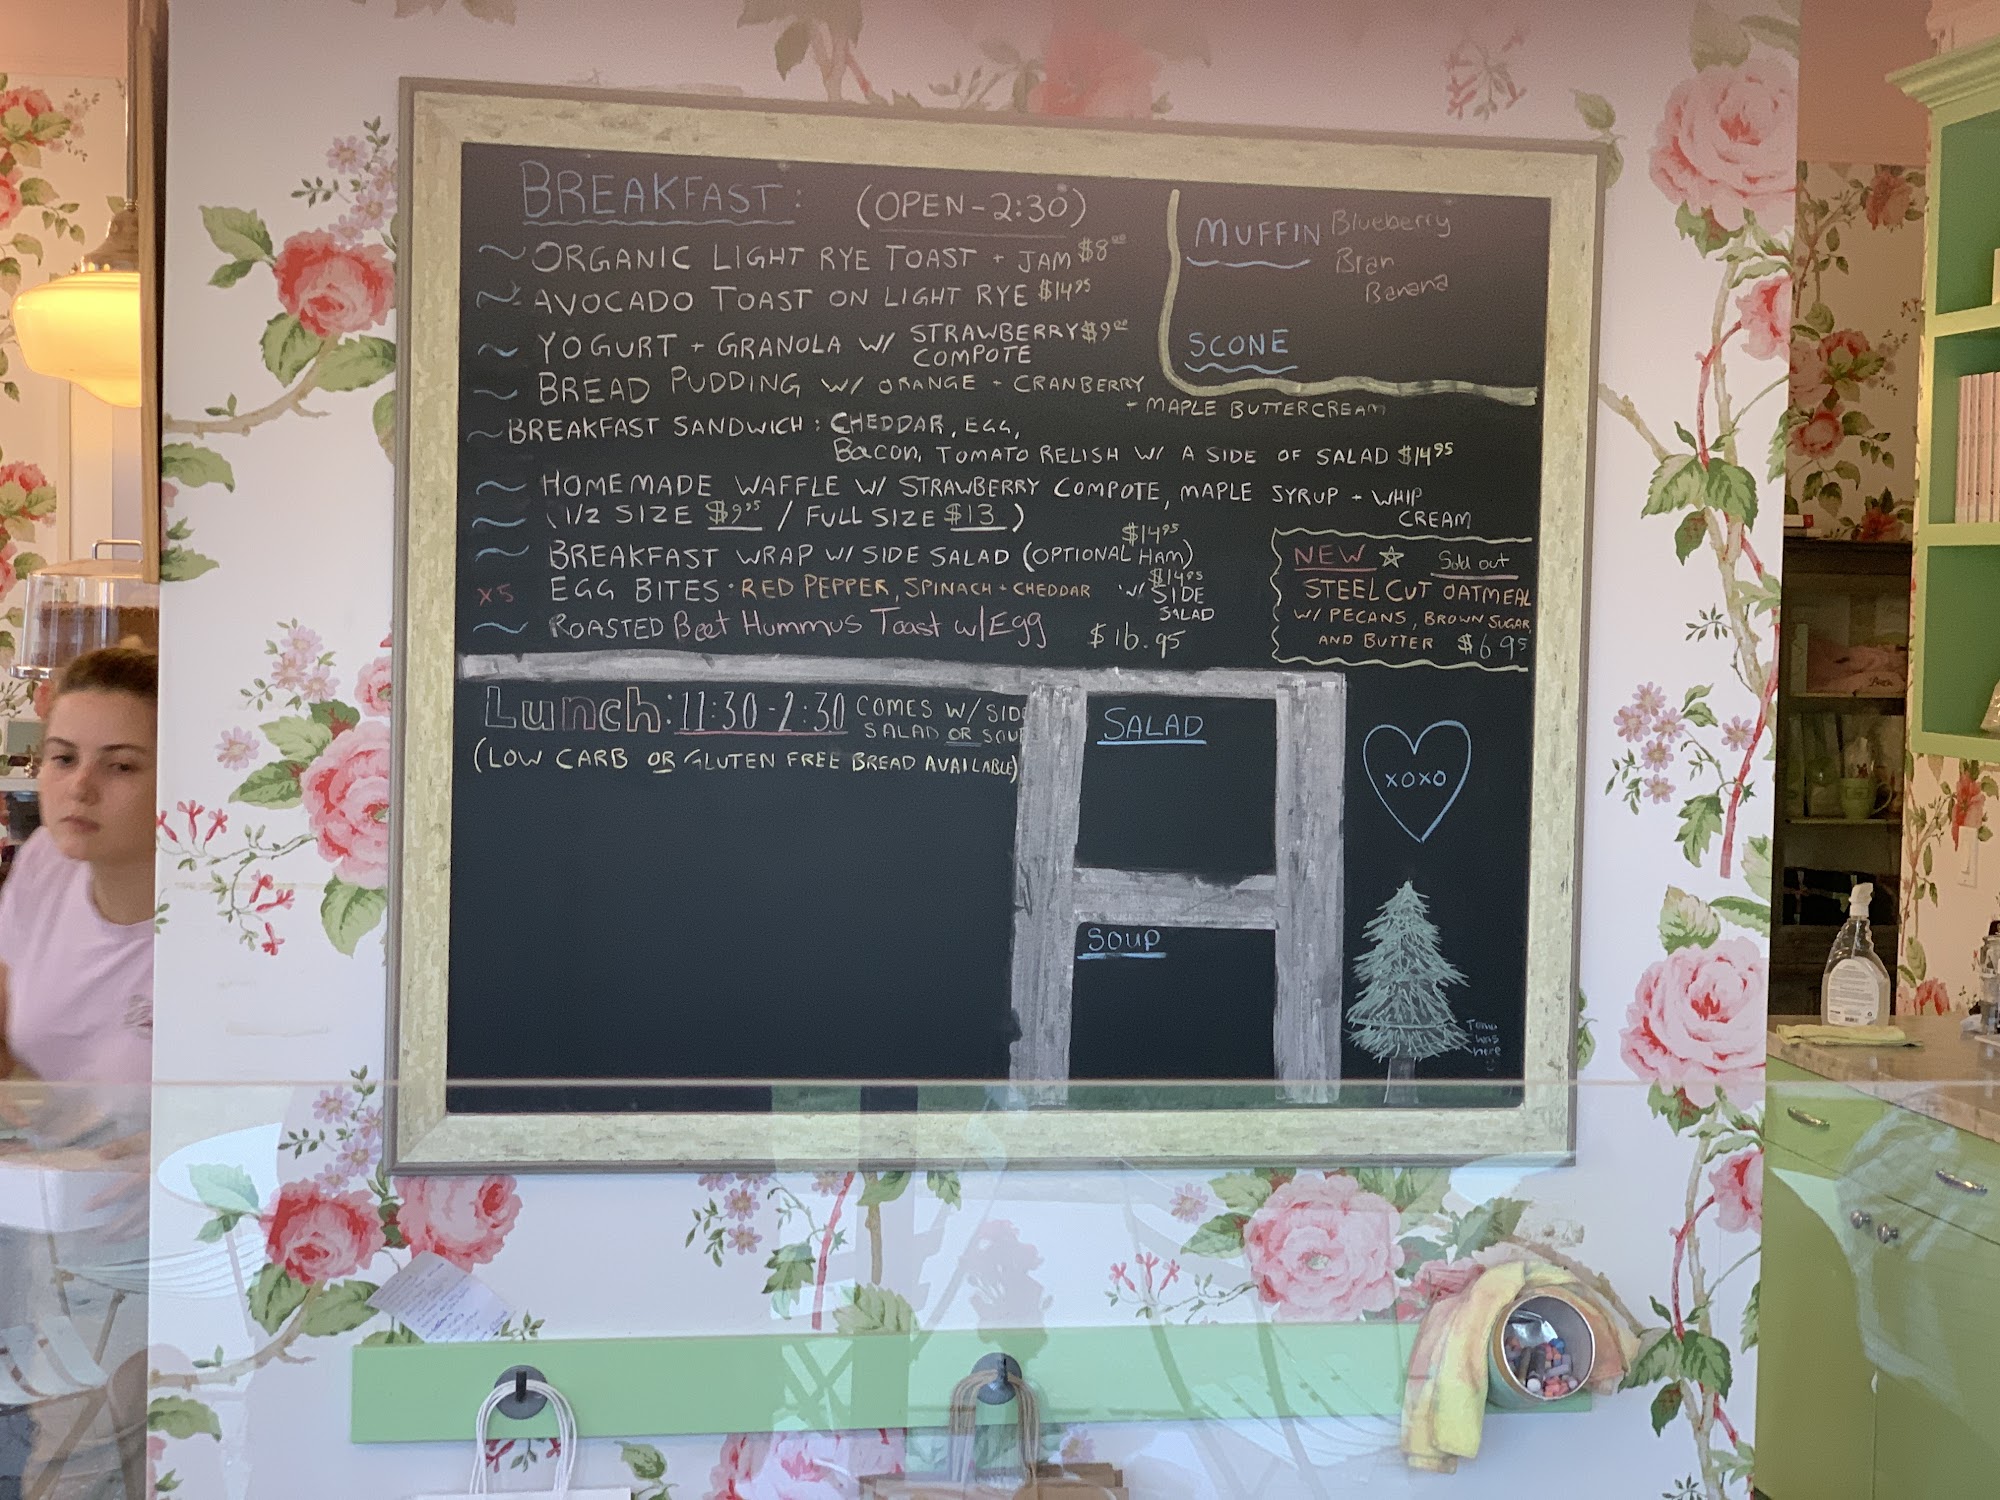 BREAKFAST: (OPEN-2:30)
~ORGANIC LIGHT RYE TOAST + JAM $8⁰⁰
~AVOCADO TOAST ON LIGHT RYE $14⁹⁵
~YOGURT + GRANOLA W/ STRAWBERRY $9⁰⁰
COMPOTE
~BREAD PUDDING W/ ORANGE + CRANBERRY
+ MAPLE BUTTERCREAM
~BREAKFAST SANDWICH: CHEDDAR, EGG,
Bacon, TOMATO RELISH W/ A SIDE OF SALAD $14⁹⁵
~HOMEMADE WAFFLE W/ STRAWBERRY COMPOTE, MAPLE SYRUP + WHIP
CREAM
~(1/2 SIZE $9⁹⁵ / FULL SIZE $13)
$14⁹⁵
~BREAKFAST WRAP W/ SIDE SALAD (OPTIONAL HAM)
X5 EGG BITES · RED PEPPER, SPINACH + CHEDDAR W/ SIDE
$14⁹⁵
SALAD
~ROASTED Beet Hummus Toast w/Egg $16.95
MUFFIN Blueberry
Bran
Banana
SCONE
NEW ☆ Sold out
STEEL CUT OATMEAL
W/ PECANS, BROWN SUGAR,
AND BUTTER $6.95
Lunch: 11:30-2:30 COMES W/ SIDE
SALAD OR SOUP
(LOW CARB OR GLUTEN FREE BREAD AVAILABLE)
SALAD
SOUP
XOXO
was
here